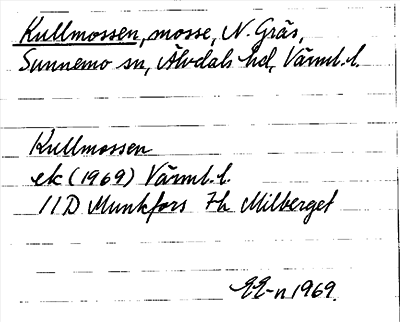 Kullmossen, mosse, N. Gräs,
Sunnemo sn, Älvdals hd, Värml. l.
Kullmossen
ek (1969) Värml. l.
11D Munkfors 7h Milberget
1969.